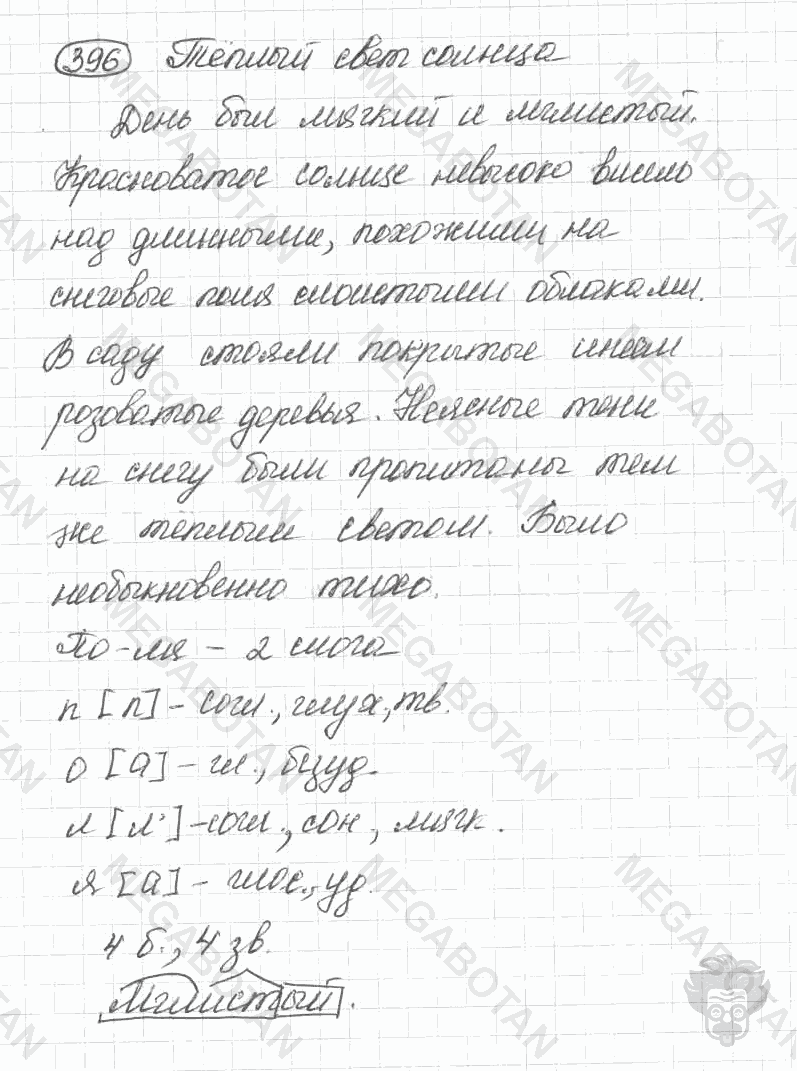 396 Теплый свет солнца
День был мягкий и мглистый.
Красноватое солнце невысоко висело
над длинными, похожими на
снеговые поля слоистыми облаками.
В саду стояли покрытые инеем
розоватые деревья. Неясные тени
на снегу были пропитаны тем
же теплым светом. Было
необыкновенно тихо.
По-ля - 2 слога
п [п] - согл., глух, тв.
о [а] - гл., безуд.
л [л'] - согл., сон, мягк.
я [а] - глас., уд.
4 б., 4 зв.
Мглистый.
MEGABOTAN